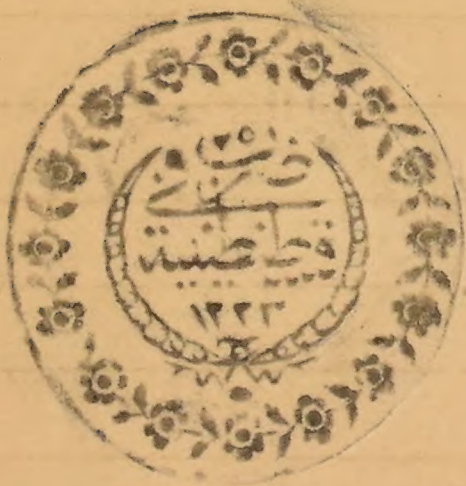 ٢٥
ضرب
فى
قسطنطينية
١٢٢٣